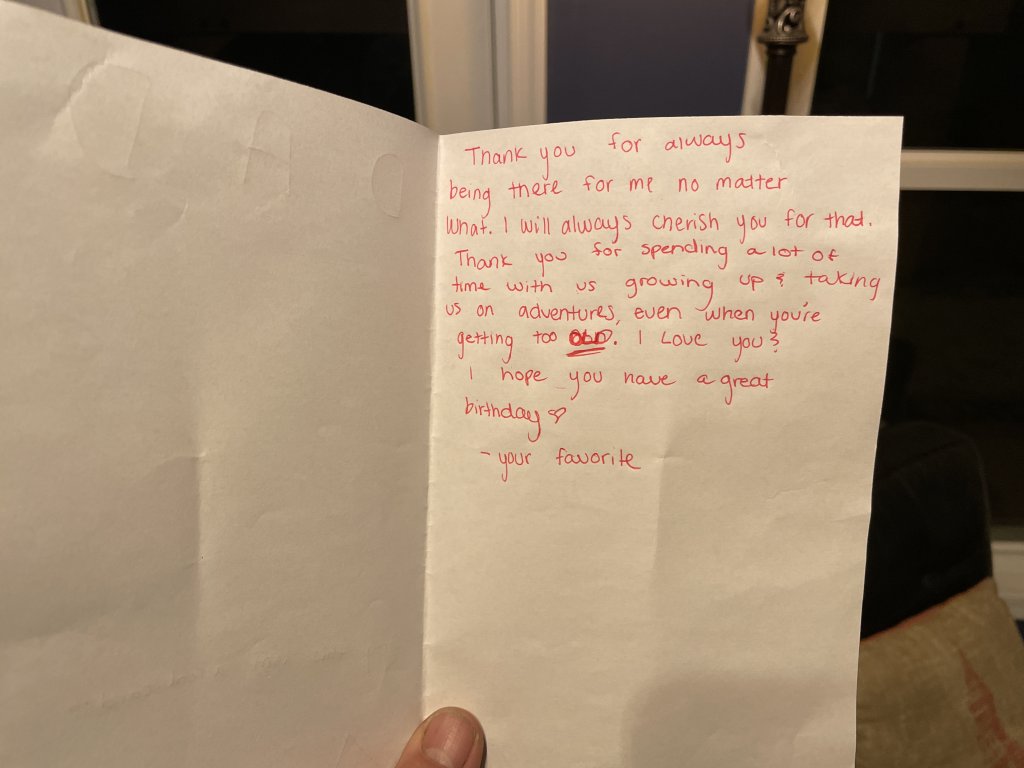 Thank you for always
being there for me no matter
what. I will always cherish you for that.
Thank you for spending a lot of
time with us growing up & taking
us on adventures, even when you're
getting too OLD. I Love you!
I hope you have a great
birthday ♡
- your favorite